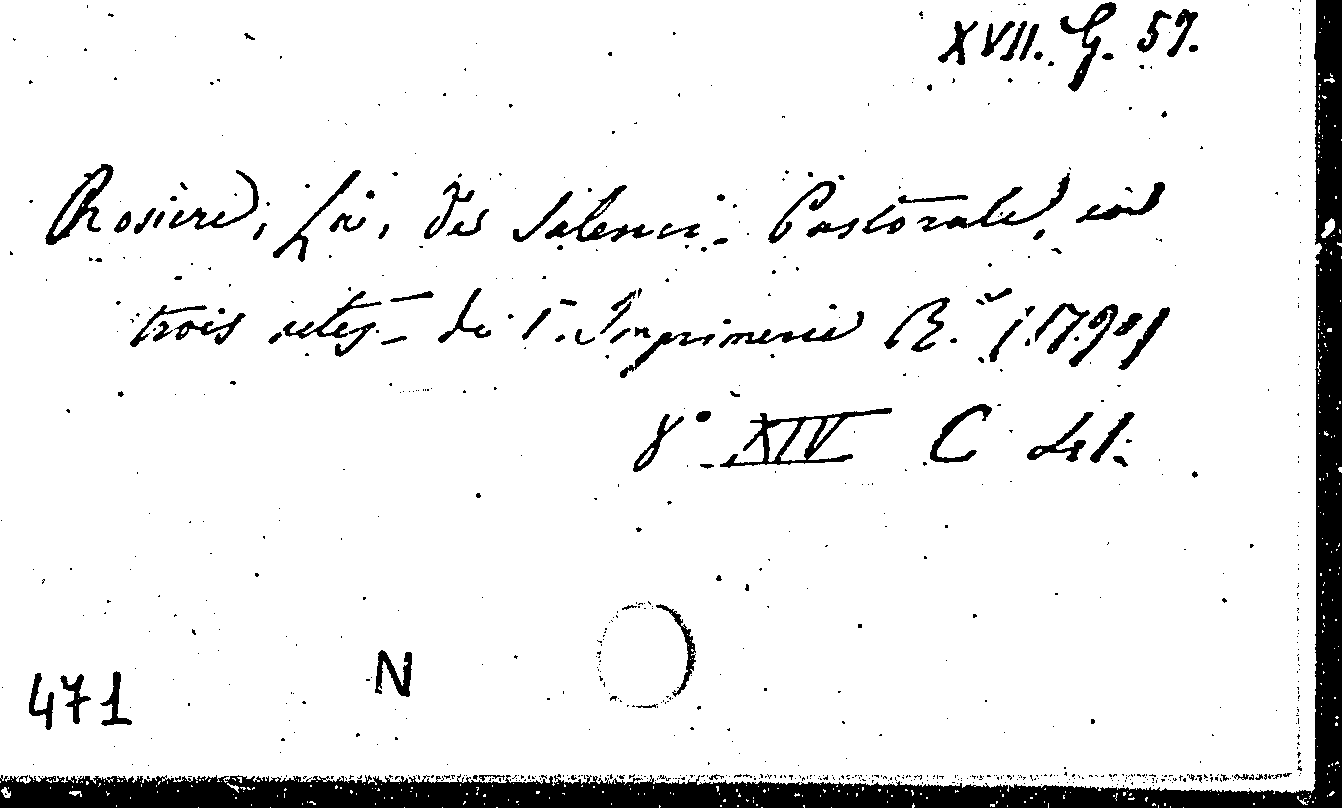 XVII. G. 57.
Rosiere, La, des Salenci. Pastorale, en
trois actes_ de l'Imprimerie R.
8° XIV C
471 N